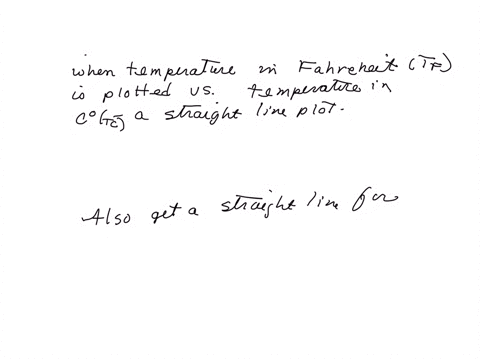 when temperature in Fahreheit (TF)
is plotted vs. temperature in
C° (TC) a straight line plot.
Also get a straight line for